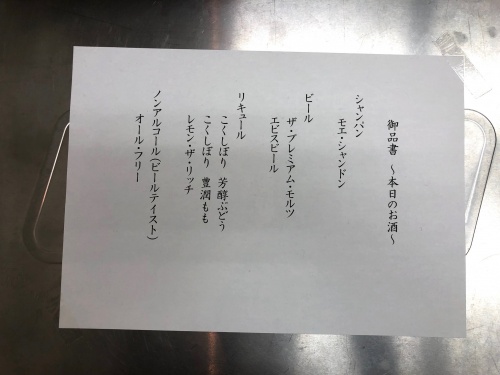 御品書　～本日のお酒～
シャンパン
モエ・シャンドン
ビール
ザ・プレミアム・モルツ
エビスビール
リキュール
こくしぼり　芳醇ぶどう
こくしぼり　豊潤もも
レモン・ザ・リッチ
ノンアルコール（ビールテイスト）
オール・フリー